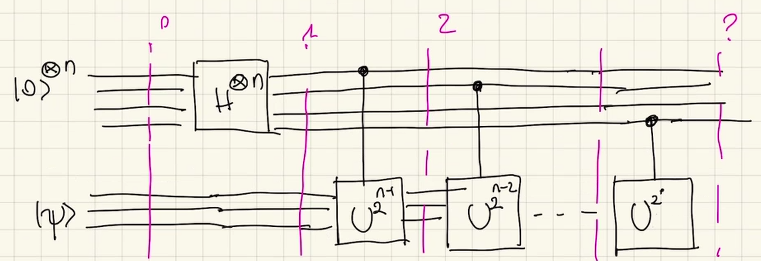 0 1 2 ?
|0⟩^{⊗n} H^{⊗n}
|ψ⟩ U^{2^{n-1}} U^{2^{n-2}} --- U^{2^0}